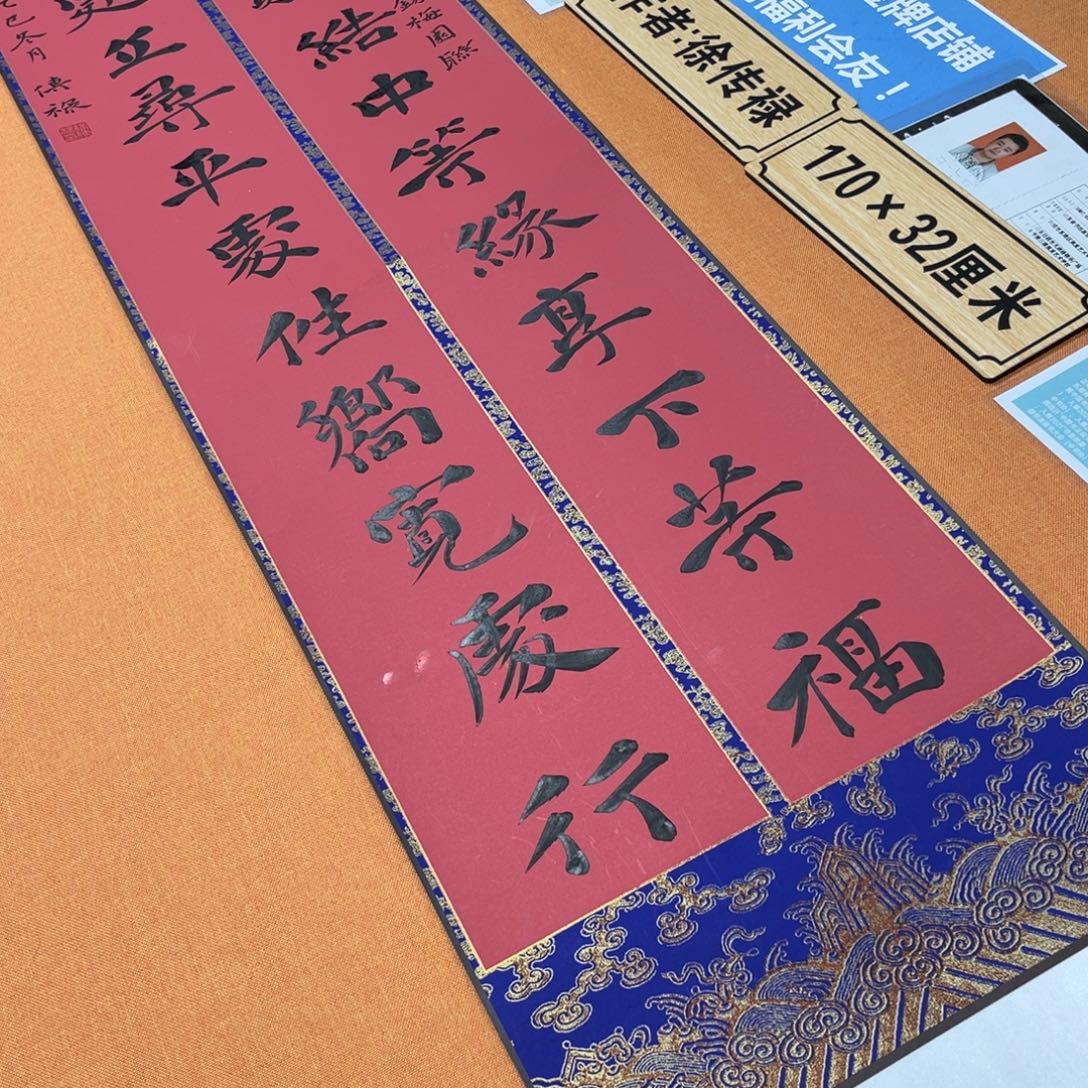 結中等緣享下等福
錫梅園聯
處立尋平處住嚮寬處行
巳冬月 傳祿
作者:徐传禄
170×32厘米
牌店铺
福利会友！